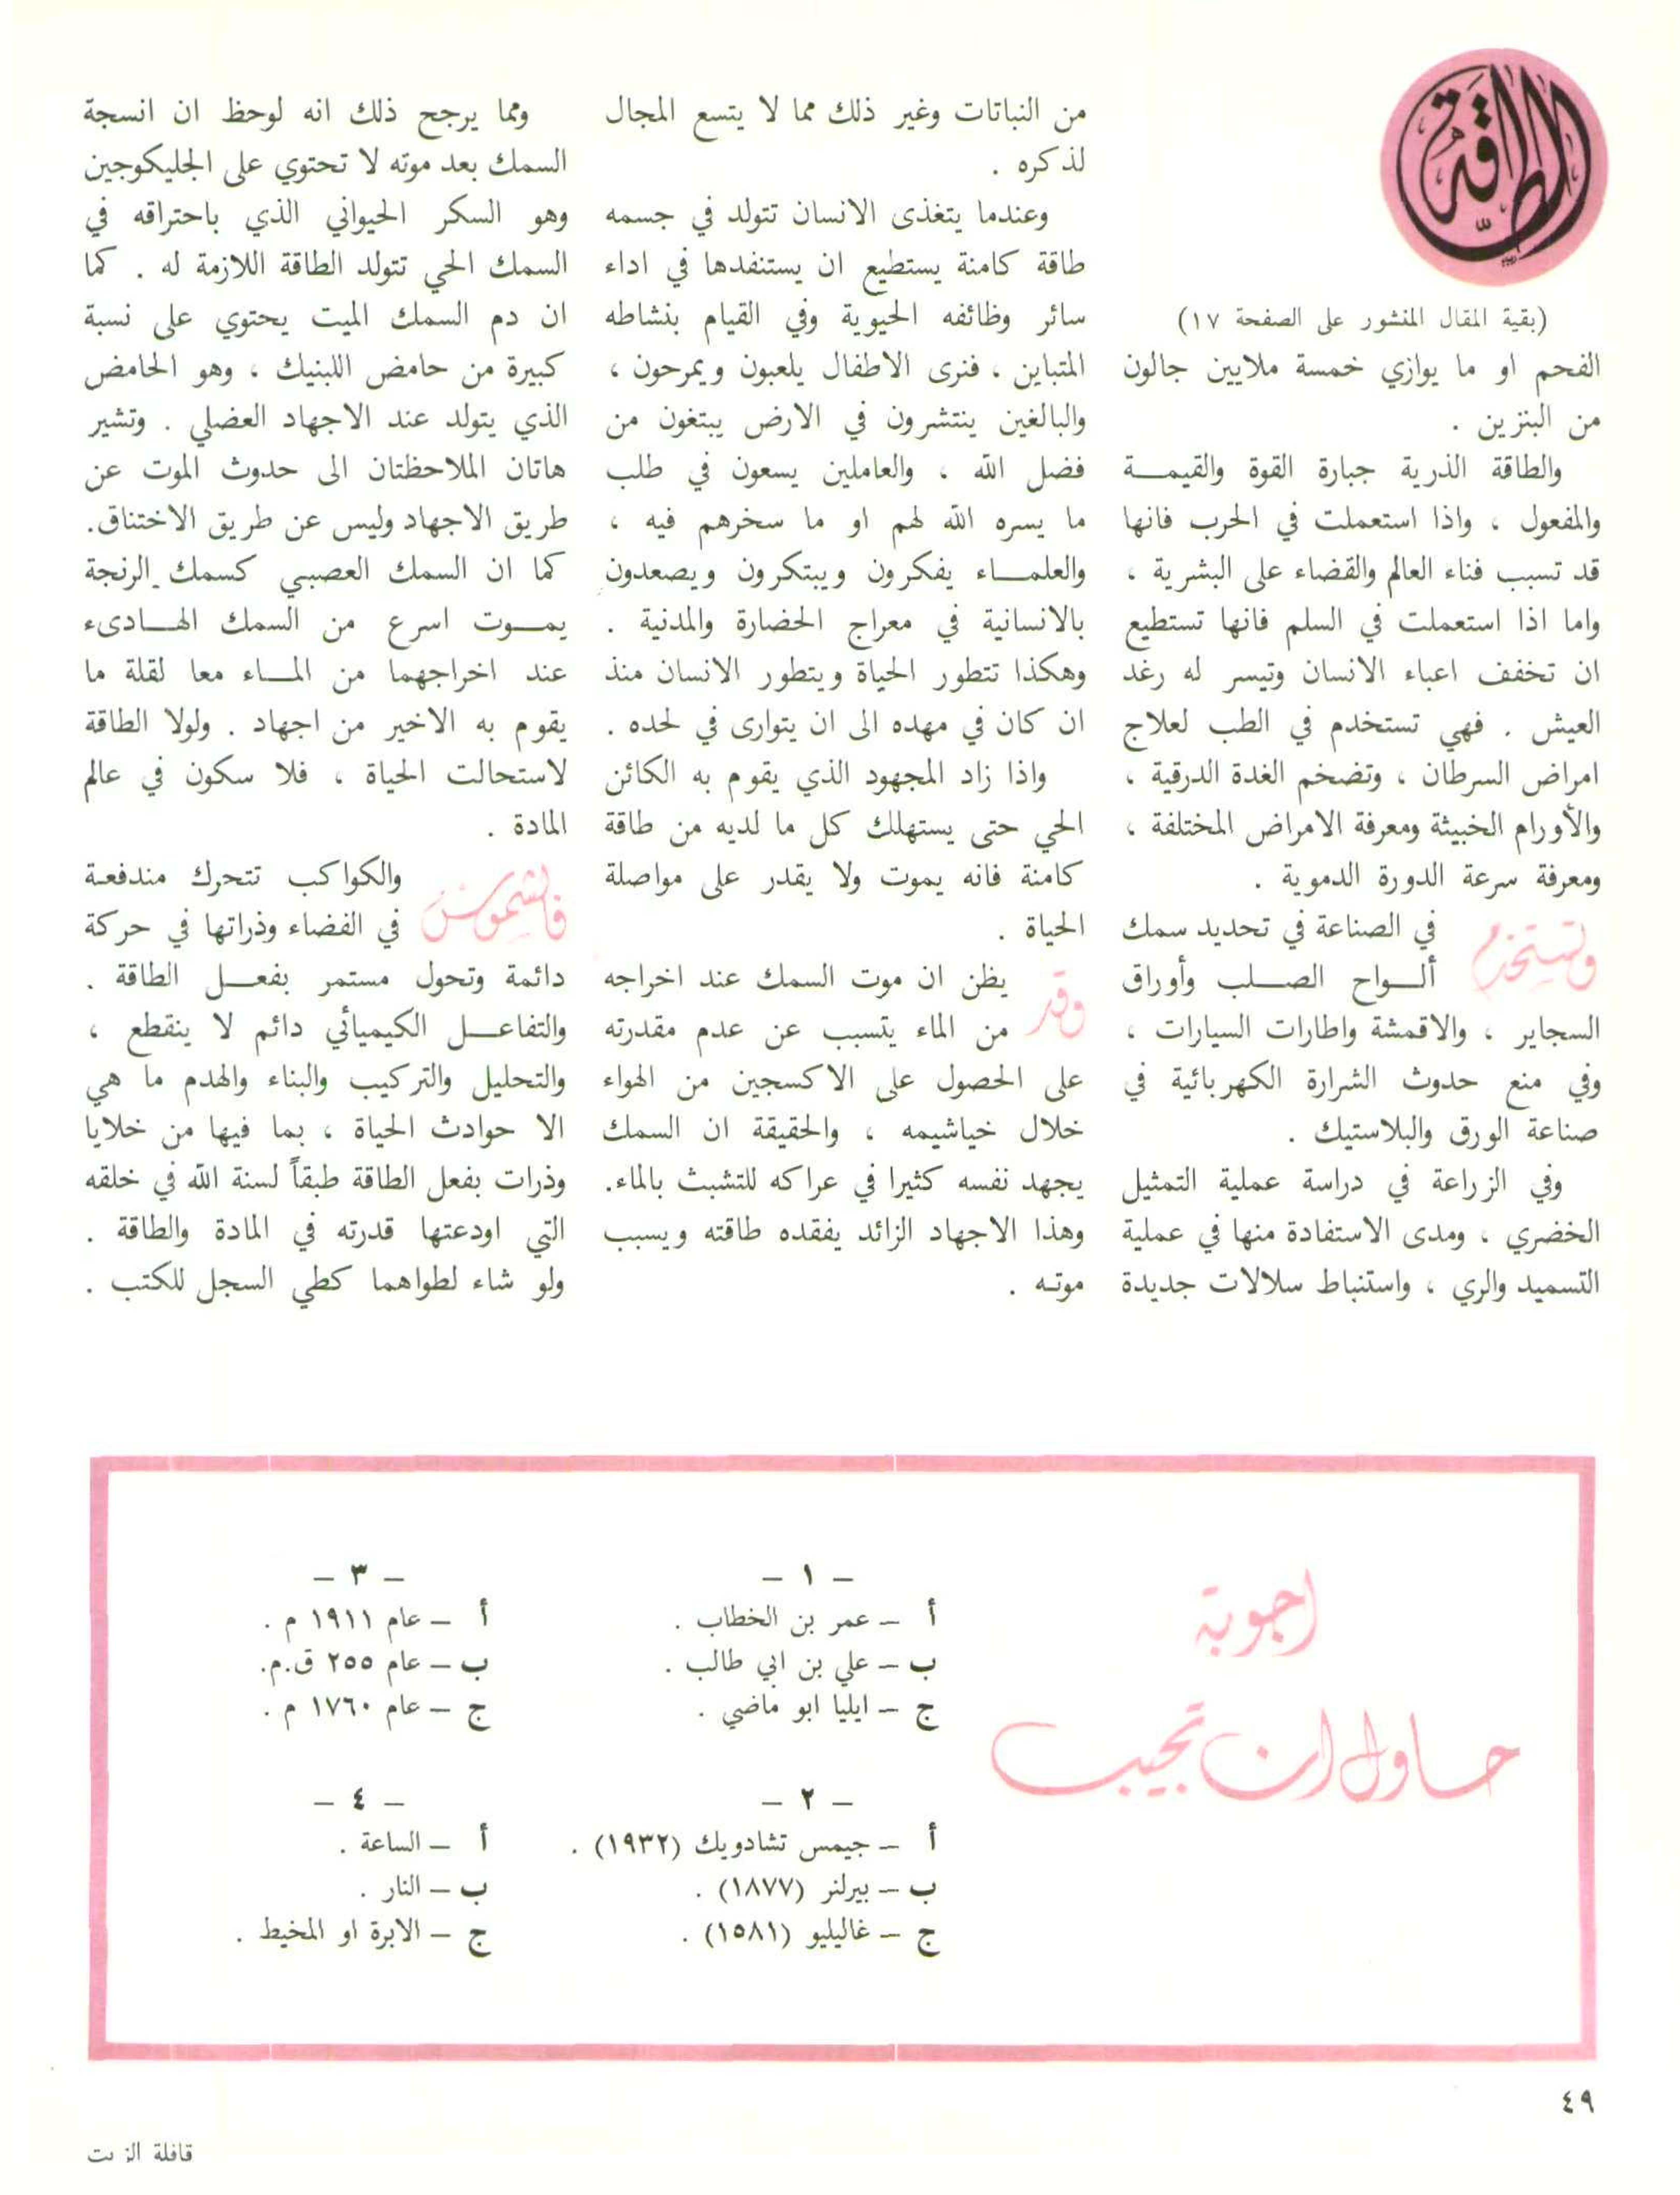 الطاقة
(بقية المقال المنشور على الصفحة ١٧)
الفحم او ما يوازي خمسة ملايين جالون
من البنزين .
والطاقة الذرية جبارة القوة والقيمـــة
والمفعول ، واذا استعملت في الحرب فانها
قد تسبب فناء العالم والقضاء على البشرية ،
واما اذا استعملت في السلم فانها تستطيع
ان تخفف اعباء الانسان وتيسر له رغد
العيش . فهي تستخدم في الطب لعلاج
امراض السرطان ، وتضخم الغدة الدرقية ،
والأورام الخبيثة ومعرفة الامراض المختلفة ،
ومعرفة سرعة الدورة الدموية .
وتستخدم في الصناعة في تحديد سمك
ألـــواح الصـــلب وأوراق
السجاير ، والاقمشة واطارات السيارات ،
وفي منع حدوث الشرارة الكهربائية في
صناعة الورق والبلاستيك .
وفي الزراعة في دراسة عملية التمثيل
الخضري ، ومدى الاستفادة منها في عملية
التسميد والري ، واستنباط سلالات جديدة
من النباتات وغير ذلك مما لا يتسع المجال
لذكره .
وعندما يتغذى الانسان تتولد في جسمه
طاقة كامنة يستطيع ان يستنفدها في اداء
سائر وظائفه الحيوية وفي القيام بنشاطه
المتباين ، فنرى الاطفال يلعبون ويمرحون ،
والبالغين ينتشرون في الارض يبتغون من
فضل الله ، والعاملين يسعون في طلب
ما يسره الله لهم او ما سخرهم فيه ،
والعلمـــاء يفكرون ويبتكرون ويصعدون
بالانسانية في معراج الحضارة والمدنية .
وهكذا تتطور الحياة ويتطور الانسان منذ
ان كان في مهده الى ان يتوارى في لحده .
واذا زاد المجهود الذي يقوم به الكائن
الحي حتى يستهلك كل ما لديه من طاقة
كامنة فانه يموت ولا يقدر على مواصلة
الحياة .
وقد يظن ان موت السمك عند اخراجه
من الماء يتسبب عن عدم مقدرته
على الحصول على الاكسجين من الهواء
خلال خياشيمه ، والحقيقة ان السمك
يجهد نفسه كثيرا في عراكه للتشبث بالماء.
وهذا الاجهاد الزائد يفقده طاقته ويسبب
موتـه .
ومما يرجح ذلك انه لوحظ ان انسجة
السمك بعد موته لا تحتوي على الجليكوجين
وهو السكر الحيواني الذي باحتراقه في
السمك الحي تتولد الطاقة اللازمة له . كما
ان دم السمك الميت يحتوي على نسبة
كبيرة من حامض اللبنيك ، وهو الحامض
الذي يتولد عند الاجهاد العضلي . وتشير
هاتان الملاحظتان الى حدوث الموت عن
طريق الاجهاد وليس عن طريق الاختناق.
كما ان السمك العصبي كسمك الرنجة
يمـــوت اسرع من السمك الهـــادىء
عند اخراجهما من المـــاء معا لقلة ما
يقوم به الاخير من اجهاد . ولولا الطاقة
لاستحالت الحياة ، فلا سكون في عالم
المادة .
فالشموس والكواكب تتحرك مندفعة
في الفضاء وذراتها في حركة
دائمة وتحول مستمر بفعـــل الطاقة .
والتفاعـــل الكيميائي دائم لا ينقطع ،
والتحليل والتركيب والبناء والهدم ما هي
الا حوادث الحياة ، بما فيها من خلايا
وذرات بفعل الطاقة طبقاً لسنة الله في خلقه
التي اودعتها قدرته في المادة والطاقة .
ولو شاء لطواهما كطي السجل للكتب .
اجوبة
حاول ان تجيب
– ١ –
أ – عمر بن الخطاب .
ب – علي بن ابي طالب .
ج – ايليا ابو ماضي .
– ٢ –
أ – جيمس تشادويك (١٩٣٢) .
ب – بيرلنر (١٨٧٧) .
ج – غاليليو (١٥٨١) .
– ٣ –
أ – عام ١٩١١ م .
ب – عام ٢٥٥ ق.م.
ج – عام ١٧٦٠ م .
– ٤ –
أ – الساعة .
ب – النار .
ج – الابرة او المخيط .
٤٩
قافلة الزيت